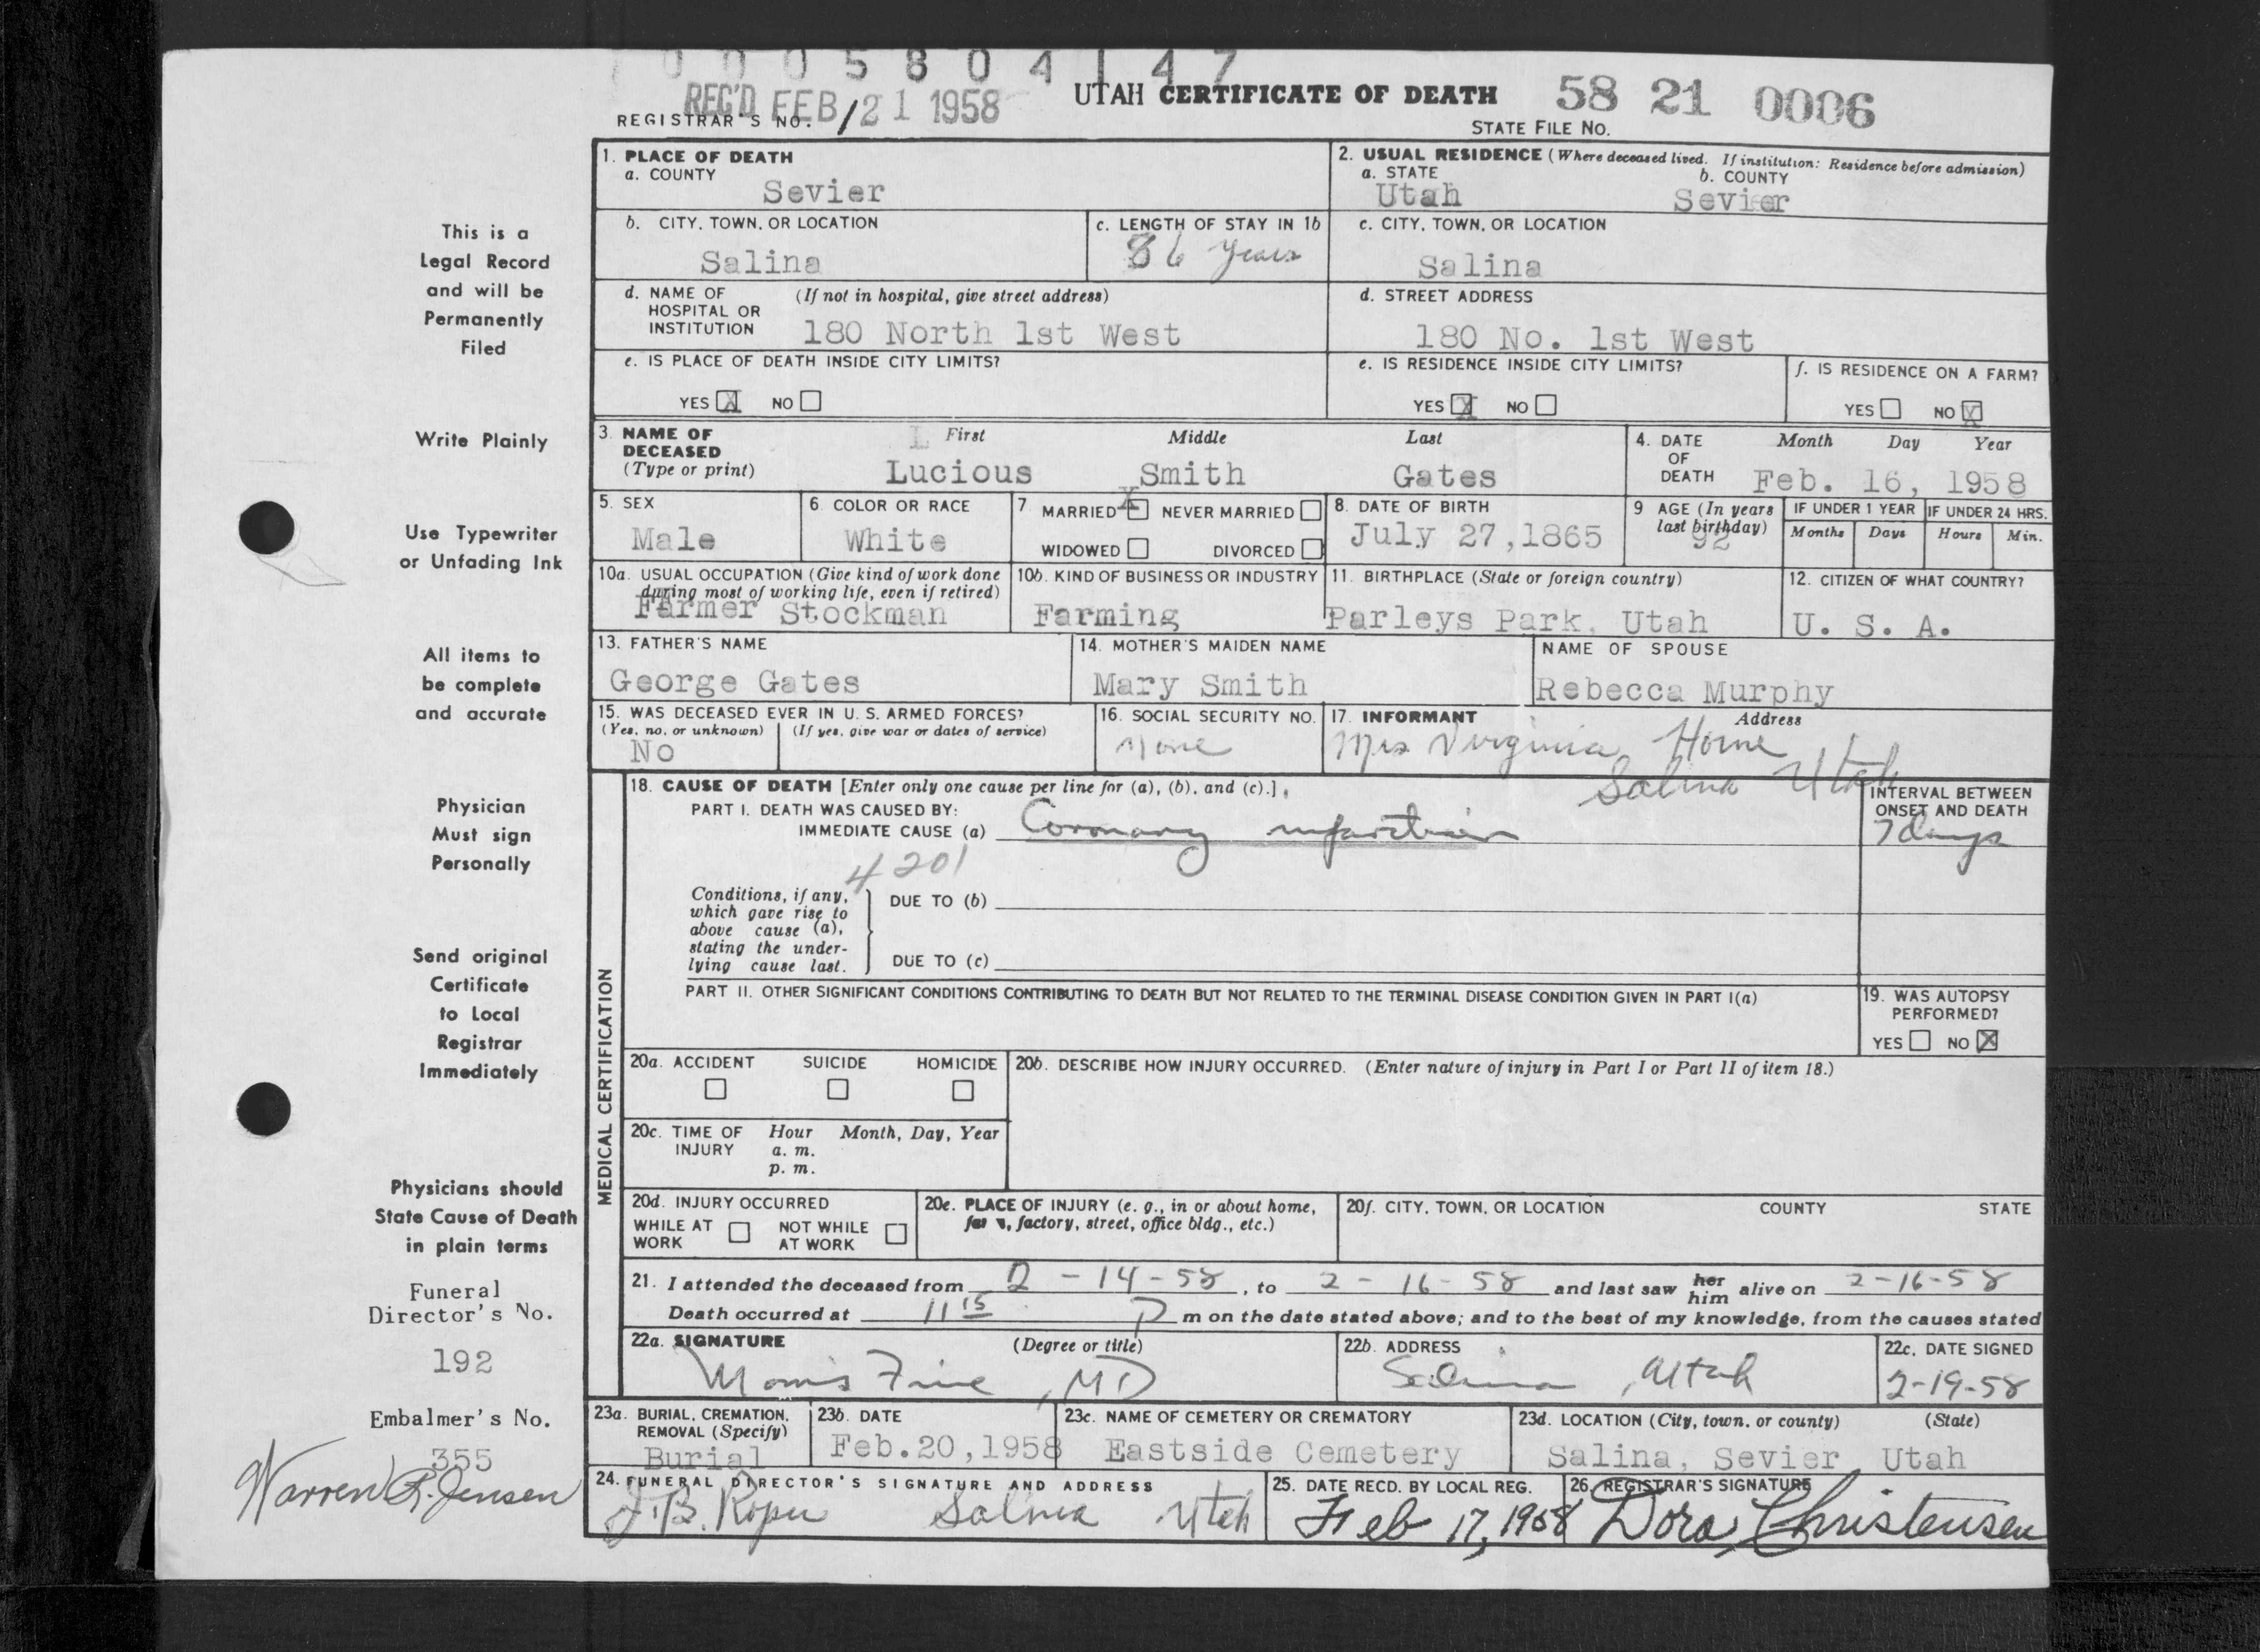 0 0 0 5 8 0 4 1 4 7
REC'D FEB 21 1958
UTAH CERTIFICATE OF DEATH 58 21 0006
REGISTRAR'S NO. /
STATE FILE NO.
1. PLACE OF DEATH
a. COUNTY
Sevier
2. USUAL RESIDENCE (Where deceased lived. If institution: Residence before admission)
a. STATE b. COUNTY
Utah Sevier
b. CITY, TOWN, OR LOCATION
Salina
c. LENGTH OF STAY IN 1b
86 years
c. CITY, TOWN, OR LOCATION
Salina
d. NAME OF (If not in hospital, give street address)
HOSPITAL OR
INSTITUTION 180 North 1st West
d. STREET ADDRESS
180 No. 1st West
e. IS PLACE OF DEATH INSIDE CITY LIMITS?
YES X NO
e. IS RESIDENCE INSIDE CITY LIMITS?
YES X NO
f. IS RESIDENCE ON A FARM?
YES NO X
3. NAME OF First Middle Last
DECEASED
(Type or print) Lucious Smith Gates
4. DATE Month Day Year
OF
DEATH Feb. 16, 1958
5. SEX
Male
6. COLOR OR RACE
White
7. MARRIED X NEVER MARRIED
WIDOWED DIVORCED
8. DATE OF BIRTH
July 27,1865
9 AGE (In years
last birthday)
92
IF UNDER 1 YEAR IF UNDER 24 HRS.
Months Days Hours Min.
10a. USUAL OCCUPATION (Give kind of work done
during most of working life, even if retired)
Farmer Stockman
10b. KIND OF BUSINESS OR INDUSTRY
Farming
11. BIRTHPLACE (State or foreign country)
Parleys Park, Utah
12. CITIZEN OF WHAT COUNTRY?
U. S. A.
13. FATHER'S NAME
George Gates
14. MOTHER'S MAIDEN NAME
Mary Smith
NAME OF SPOUSE
Rebecca Murphy
15. WAS DECEASED EVER IN U. S. ARMED FORCES?
(Yes, no, or unknown) (If yes, give war or dates of service)
No
16. SOCIAL SECURITY NO.
None
17. INFORMANT Address
Mrs Virginia Horne
Salina Utah
MEDICAL CERTIFICATION
18. CAUSE OF DEATH [Enter only one cause per line for (a), (b), and (c).]
PART I. DEATH WAS CAUSED BY:
IMMEDIATE CAUSE (a) Coronary infarction
INTERVAL BETWEEN
ONSET AND DEATH
7 days
4201
Conditions, if any,
which gave rise to
above cause (a),
stating the under-
lying cause last.
DUE TO (b)
DUE TO (c)
PART II. OTHER SIGNIFICANT CONDITIONS CONTRIBUTING TO DEATH BUT NOT RELATED TO THE TERMINAL DISEASE CONDITION GIVEN IN PART I(a)
19. WAS AUTOPSY
PERFORMED?
YES NO X
20a. ACCIDENT SUICIDE HOMICIDE
20b. DESCRIBE HOW INJURY OCCURRED. (Enter nature of injury in Part I or Part II of item 18.)
20c. TIME OF Hour Month, Day, Year
INJURY a. m.
p. m.
20d. INJURY OCCURRED
WHILE AT NOT WHILE
WORK AT WORK
20e. PLACE OF INJURY (e. g., in or about home,
farm, factory, street, office bldg., etc.)
20f. CITY, TOWN, OR LOCATION COUNTY STATE
21. I attended the deceased from 2-14-58, to 2-16-58 and last saw her him alive on 2-16-58
Death occurred at 11 15 P m on the date stated above; and to the best of my knowledge, from the causes stated
22a. SIGNATURE (Degree or title)
Morris Fine, MD
22b. ADDRESS
Salina, Utah
22c. DATE SIGNED
2-19-58
23a. BURIAL, CREMATION,
REMOVAL (Specify)
Burial
23b. DATE
Feb.20,1958
23c. NAME OF CEMETERY OR CREMATORY
Eastside Cemetery
23d. LOCATION (City, town, or county) (State)
Salina, Sevier Utah
24. FUNERAL DIRECTOR'S SIGNATURE AND ADDRESS
J. B. Salina Utah
25. DATE RECD. BY LOCAL REG.
Feb 17, 1958
26. REGISTRAR'S SIGNATURE
Dora Christensen
This is a
Legal Record
and will be
Permanently
Filed
Write Plainly
Use Typewriter
or Unfading Ink
All items to
be complete
and accurate
Physician
Must sign
Personally
Send original
Certificate
to Local
Registrar
Immediately
Physicians should
State Cause of Death
in plain terms
Funeral
Director's No.
192
Embalmer's No.
355
Warren R. Jensen